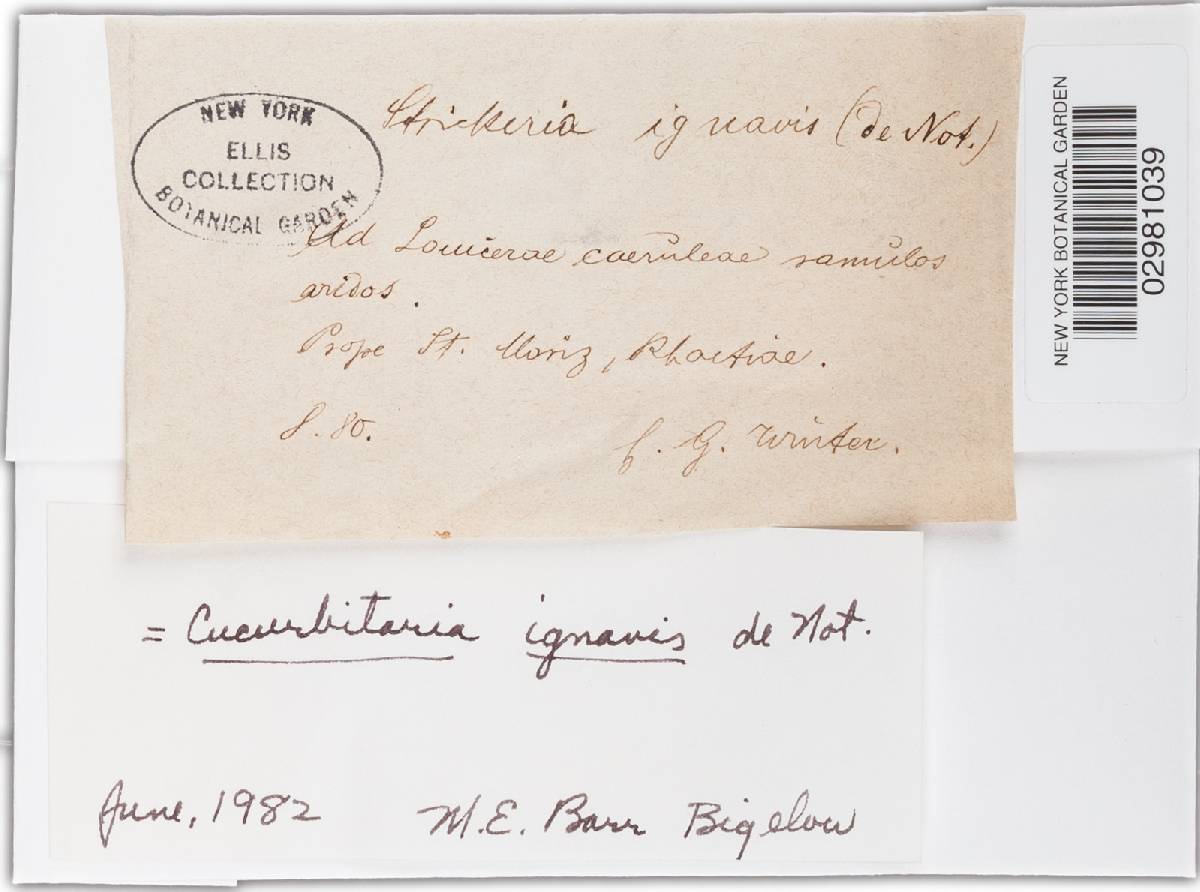 Strickeria ignavis (de Not.)
NEW YORK
ELLIS
COLLECTION
BOTANICAL GARDEN
Ad Lonicerae caeruleae ramulos
aridos.
Prope St. Moriz, Rhaetiae.
8. 80.
f. G. Winter.
NEW YORK BOTANICAL GARDEN
02981039
= Cucurbitaria ignavis de Not.
June, 1982 M.E. Barr Bigelow